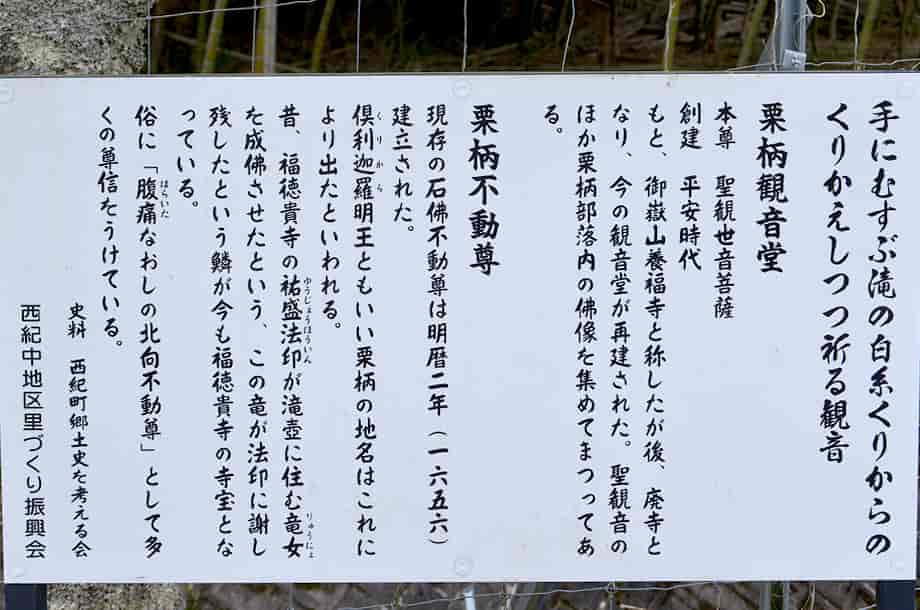 手にむすぶ滝の白糸くりからの
くりかえしつつ祈る観音
栗柄観音堂
本尊　聖観世音菩薩
創建　平安時代
もと、御嶽山養福寺と称したが後、廃寺と
なり、今の観音堂が再建された。聖観音の
ほか栗柄部落内の佛像を集めてまつってあ
る。
栗柄不動尊
現存の石佛不動尊は明暦二年（一六五六）
建立された。
倶利迦羅明王ともいい栗柄の地名はこれに
くりから
より出たといわれる。
昔、福徳貴寺の祐盛法印が滝壺に住む竜女
ゆうじょうほういん
りゅうにょ
を成佛させたという、この竜が法印に謝し
残したという鱗が今も福徳貴寺の寺宝とな
っている。
俗に「腹痛なおしの北向不動尊」として多
はらいた
くの尊信をうけている。
史料　西紀町郷土史を考える会
西紀中地区里づくり振興会